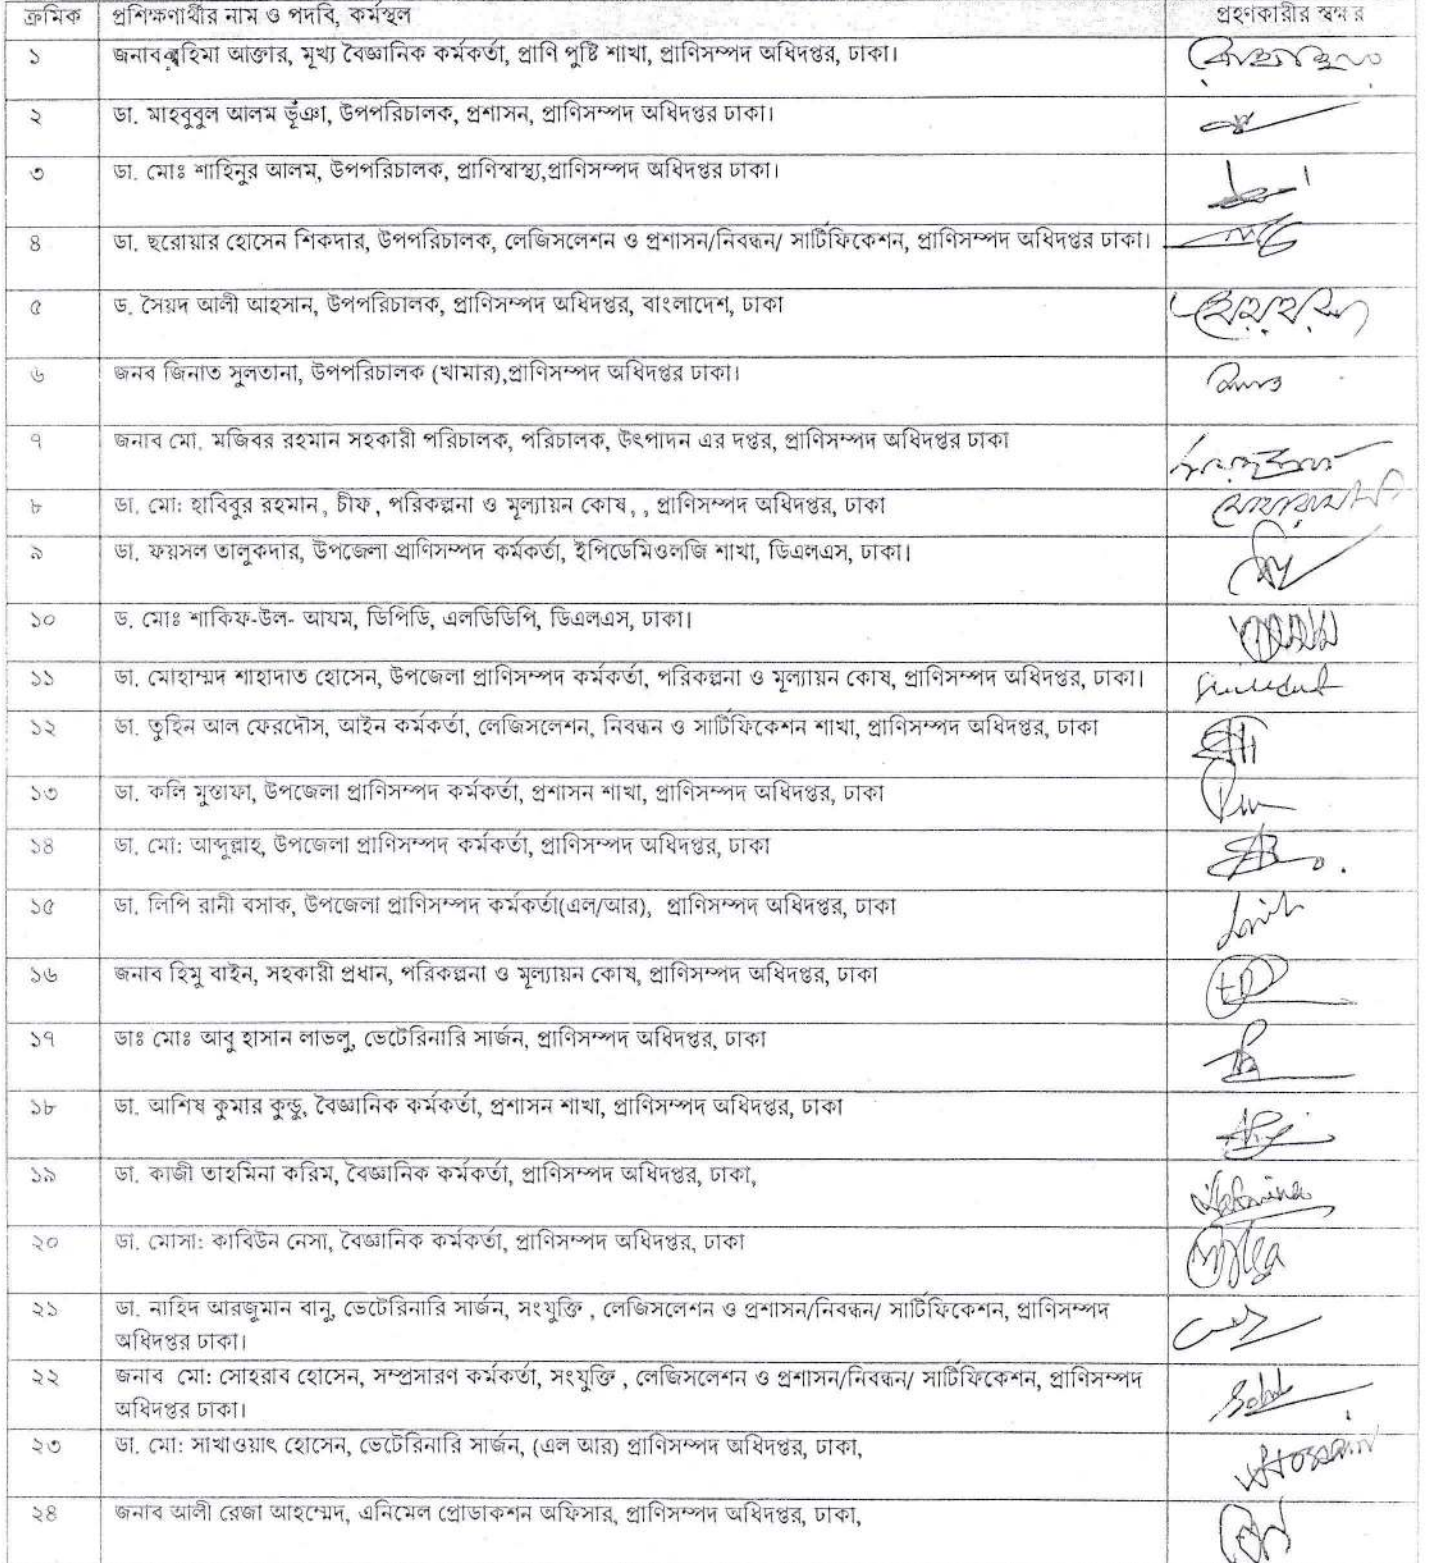 ক্রমিক প্রশিক্ষণার্থীর নাম ও পদবি, কর্মস্থল গ্রহণকারীর স্বাক্ষর
১ জনাব রহিমা আক্তার, মূখ্য বৈজ্ঞানিক কর্মকর্তা, প্রাণি পুষ্টি শাখা, প্রাণিসম্পদ অধিদপ্তর, ঢাকা।
২ ডা. মাহবুবুল আলম ভূঁঞা, উপপরিচালক, প্রশাসন, প্রাণিসম্পদ অধিদপ্তর ঢাকা।
৩ ডা. মোঃ শাহিনুর আলম, উপপরিচালক, প্রাণিস্বাস্থ্য,প্রাণিসম্পদ অধিদপ্তর ঢাকা।
৪ ডা. ছরোয়ার হোসেন শিকদার, উপপরিচালক, লেজিসলেশন ও প্রশাসন/নিবন্ধন/ সার্টিফিকেশন, প্রাণিসম্পদ অধিদপ্তর ঢাকা।
৫ ড. সৈয়দ আলী আহসান, উপপরিচালক, প্রাণিসম্পদ অধিদপ্তর, বাংলাদেশ, ঢাকা
৬ জনব জিনাত সুলতানা, উপপরিচালক (খামার),প্রাণিসম্পদ অধিদপ্তর ঢাকা।
৭ জনাব মো. মজিবর রহমান সহকারী পরিচালক, পরিচালক, উৎপাদন এর দপ্তর, প্রাণিসম্পদ অধিদপ্তর ঢাকা
৮ ডা. মো: হাবিবুর রহমান , চীফ , পরিকল্পনা ও মূল্যায়ন কোষ, , প্রাণিসম্পদ অধিদপ্তর, ঢাকা
৯ ডা. ফয়সল তালুকদার, উপজেলা প্রাণিসম্পদ কর্মকর্তা, ইপিডেমিওলজি শাখা, ডিএলএস, ঢাকা।
১০ ড. মোঃ শাকিফ-উল- আযম, ডিপিডি, এলডিডিপি, ডিএলএস, ঢাকা।
১১ ডা. মোহাম্মদ শাহাদাত হোসেন, উপজেলা প্রাণিসম্পদ কর্মকর্তা, পরিকল্পনা ও মূল্যায়ন কোষ, প্রাণিসম্পদ অধিদপ্তর, ঢাকা।
১২ ডা. তুহিন আল ফেরদৌস, আইন কর্মকর্তা, লেজিসলেশন, নিবন্ধন ও সার্টিফিকেশন শাখা, প্রাণিসম্পদ অধিদপ্তর, ঢাকা
১৩ ডা. কলি মুস্তাফা, উপজেলা প্রাণিসম্পদ কর্মকর্তা, প্রশাসন শাখা, প্রাণিসম্পদ অধিদপ্তর, ঢাকা
১৪ ডা. মো: আব্দুল্লাহ, উপজেলা প্রাণিসম্পদ কর্মকর্তা, প্রাণিসম্পদ অধিদপ্তর, ঢাকা
১৫ ডা. লিপি রানী বসাক, উপজেলা প্রাণিসম্পদ কর্মকর্তা(এল/আর), প্রাণিসম্পদ অধিদপ্তর, ঢাকা
১৬ জনাব হিমু বাইন, সহকারী প্রধান, পরিকল্পনা ও মূল্যায়ন কোষ, প্রাণিসম্পদ অধিদপ্তর, ঢাকা
১৭ ডাঃ মোঃ আবু হাসান লাভলু, ভেটেরিনারি সার্জন, প্রাণিসম্পদ অধিদপ্তর, ঢাকা
১৮ ডা. আশিষ কুমার কুন্ডু, বৈজ্ঞানিক কর্মকর্তা, প্রশাসন শাখা, প্রাণিসম্পদ অধিদপ্তর, ঢাকা
১৯ ডা. কাজী তাহমিনা করিম, বৈজ্ঞানিক কর্মকর্তা, প্রাণিসম্পদ অধিদপ্তর, ঢাকা,
২০ ডা. মোসা: কাবিউন নেসা, বৈজ্ঞানিক কর্মকর্তা, প্রাণিসম্পদ অধিদপ্তর, ঢাকা
২১ ডা. নাহিদ আরজুমান বানু, ভেটেরিনারি সার্জন, সংযুক্তি , লেজিসলেশন ও প্রশাসন/নিবন্ধন/ সার্টিফিকেশন, প্রাণিসম্পদ
অধিদপ্তর ঢাকা।
২২ জনাব মো: সোহরাব হোসেন, সম্প্রসারণ কর্মকর্তা, সংযুক্তি , লেজিসলেশন ও প্রশাসন/নিবন্ধন/ সার্টিফিকেশন, প্রাণিসম্পদ
অধিদপ্তর ঢাকা।
২৩ ডা. মো: সাখাওয়াৎ হোসেন, ভেটেরিনারি সার্জন, (এল আর) প্রাণিসম্পদ অধিদপ্তর, ঢাকা,
২৪ জনাব আলী রেজা আহম্মেদ, এনিমেল প্রোডাকশন অফিসার, প্রাণিসম্পদ অধিদপ্তর, ঢাকা,